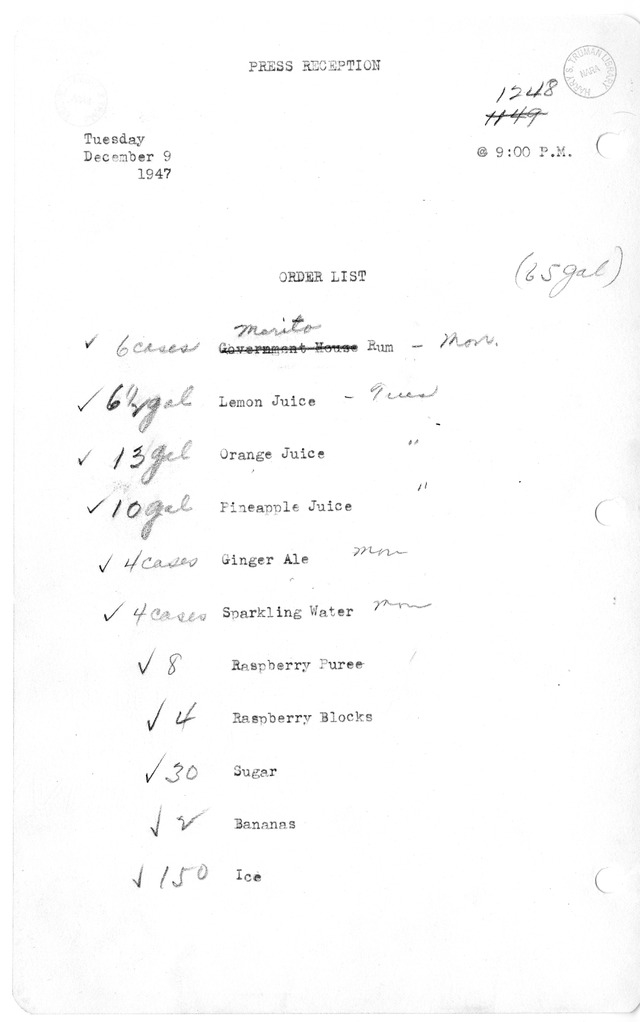 PRESS RECEPTION
HARRY S. TRUMAN LIBRARY
NARA
1248
1149
Tuesday
December 9
1947
@ 9:00 P.M.
ORDER LIST
(65 gal)
Merito
✓ 6 cases Government House Rum – Mon.
✓ 6½ gal Lemon Juice – Tues
✓ 13 gal Orange Juice "
✓ 10 gal Pineapple Juice "
✓ 4 cases Ginger Ale Mon
✓ 4 cases Sparkling Water Mon
✓ 8 Raspberry Puree
✓ 4 Raspberry Blocks
✓ 30 Sugar
✓ 2 Bananas
✓ 150 Ice